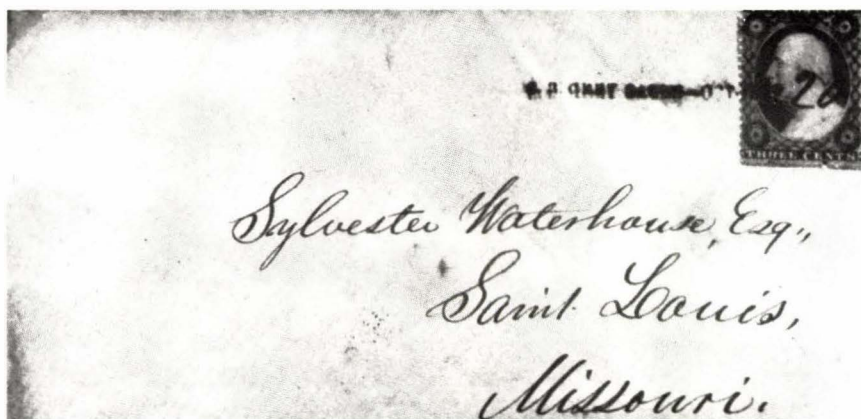 20
THREE CENTS
Sylvester Waterhouse, Esq.,
Saint Louis,
Missouri.